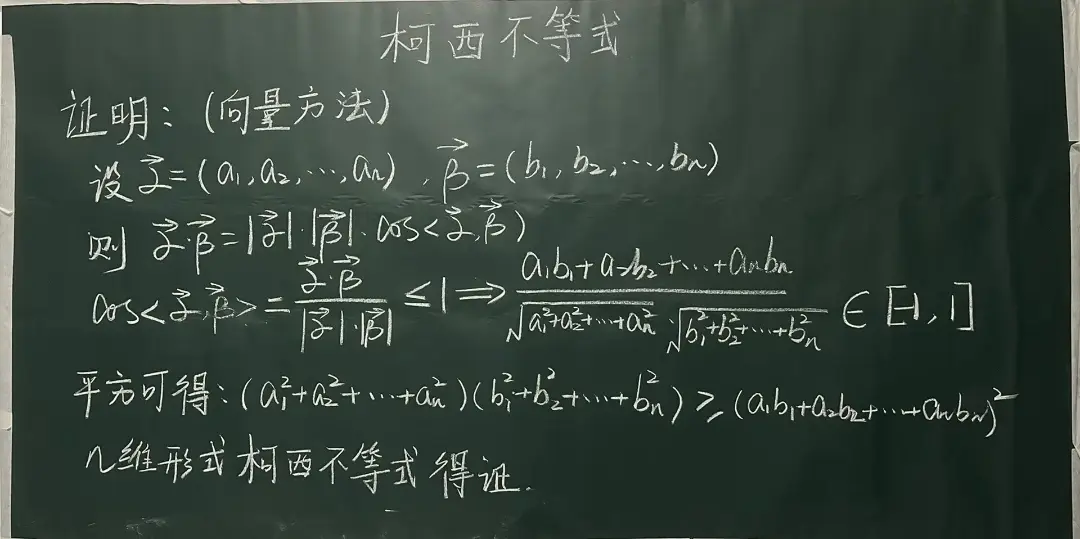 柯西不等式
证明：(向量方法)
设 α⃗=(a₁,a₂,…,aₙ), β⃗=(b₁,b₂,…,bₙ)
则 α⃗·β⃗=|α⃗|·|β⃗|·cos<α⃗,β⃗)
cos<α⃗,β⃗>=(α⃗·β⃗)/(|α⃗|·|β⃗|)≤1⇒(a₁b₁+a₂b₂+…+aₙbₙ)/(√(a₁²+a₂²+…+aₙ²) √(b₁²+b₂²+…+bₙ²))∈[-1,1]
平方可得：(a₁²+a₂²+…+aₙ²)(b₁²+b₂²+…+bₙ²)≥(a₁b₁+a₂b₂+…+aₙbₙ)²
n维形式柯西不等式得证.